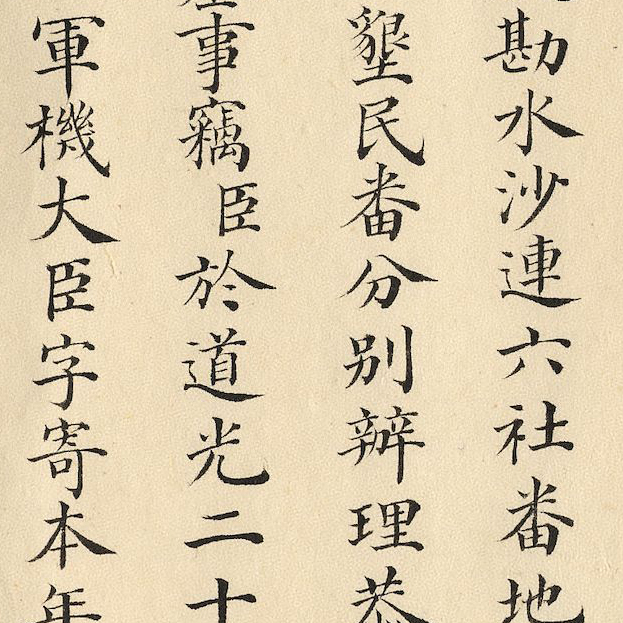 勘水沙連六社番地
墾民番分別辦理恭
事竊臣於道光二十
軍機大臣字寄本年